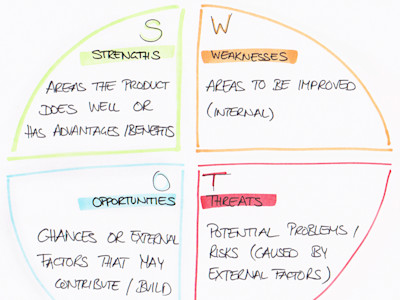 S
STRENGTHS
AREAS THE PRODUCT
DOES WELL OR
HAS ADVANTAGES/BENEFITS
W
WEAKNESSES
AREAS TO BE IMPROVED
(INTERNAL)
O
OPPORTUNITIES
CHANCES OR EXTERNAL
FACTORS THAT MAY
CONTRIBUTE / BUILD
T
THREATS
POTENTIAL PROBLEMS /
RISKS (CAUSED BY
EXTERNAL FACTORS)